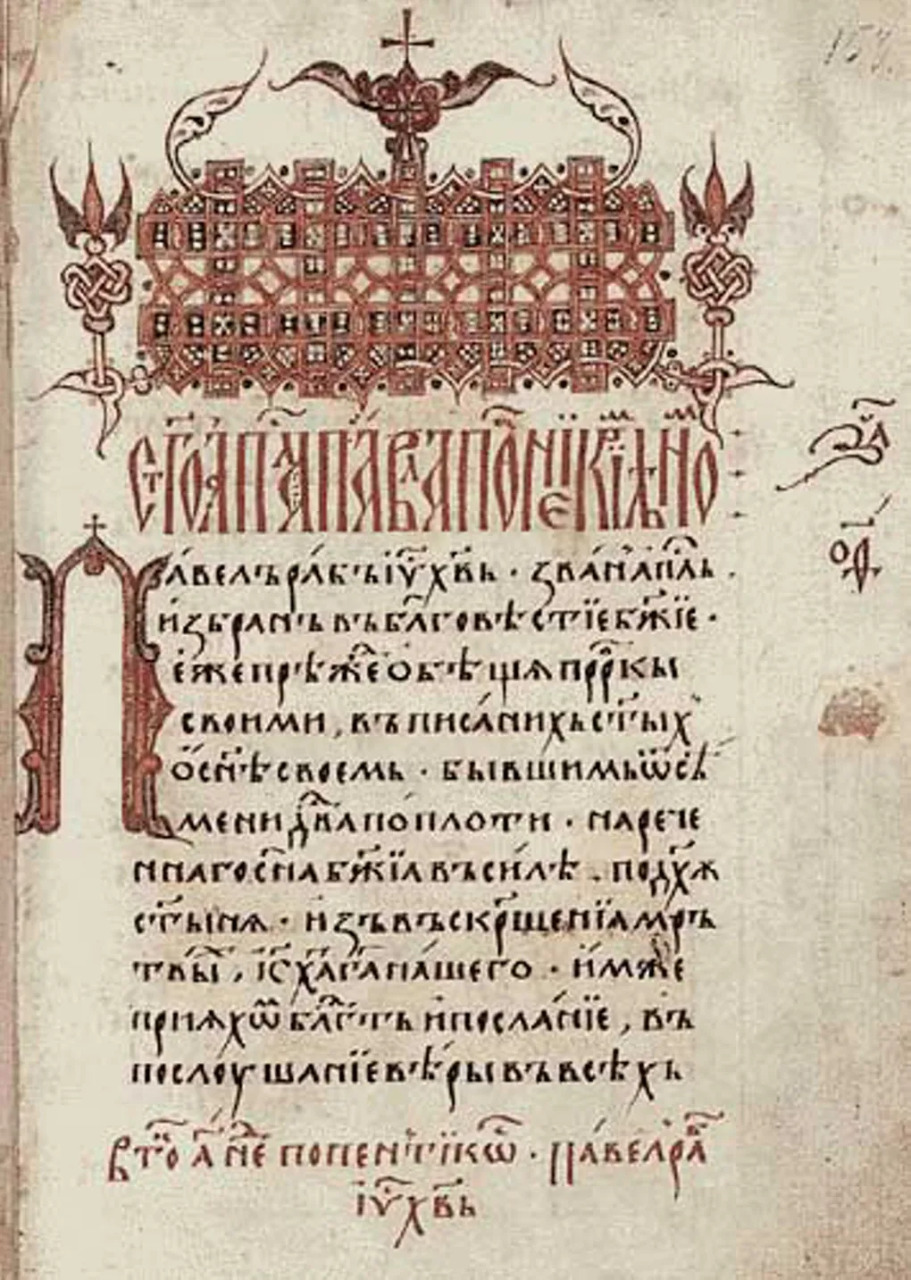 157
ст҃го ап҃ла па́вла посланїе к римлѧном
за҃
ѻ҃д
Па́велъ ра́бъ їу҃ х҃вь · зва́нъ ап҇лъ ·
и҆збранъ въ бл҃говѣстїе бж҃їе ·
е҆же прѣж҇е о҆бѣщѧ прⷪ҇ркы
своими , въ писа́нихь ст҃ыхⸯ
о҆ сн҃ѣ своемь · бывшимь ѿ сѣ́
мени дв҃да по плоти · нарече
ннаго сн҃а бж҃їа въ си́лѣ . по дх҃ѫ
ст҃ынѧ · и҆зъ въскр҃щенїа мрь
твы́ , їс҃ х҃а г҃а нашего · и҆мже
приѧхѡ бл҃гть и҆ посла́нїе , въ
послоу́шанїе вѣ́ры въ всѣхь
в то҃ а҃ не҃ по пентикѡ҇ · Па́вел ра́б
їу҃ х҃вь